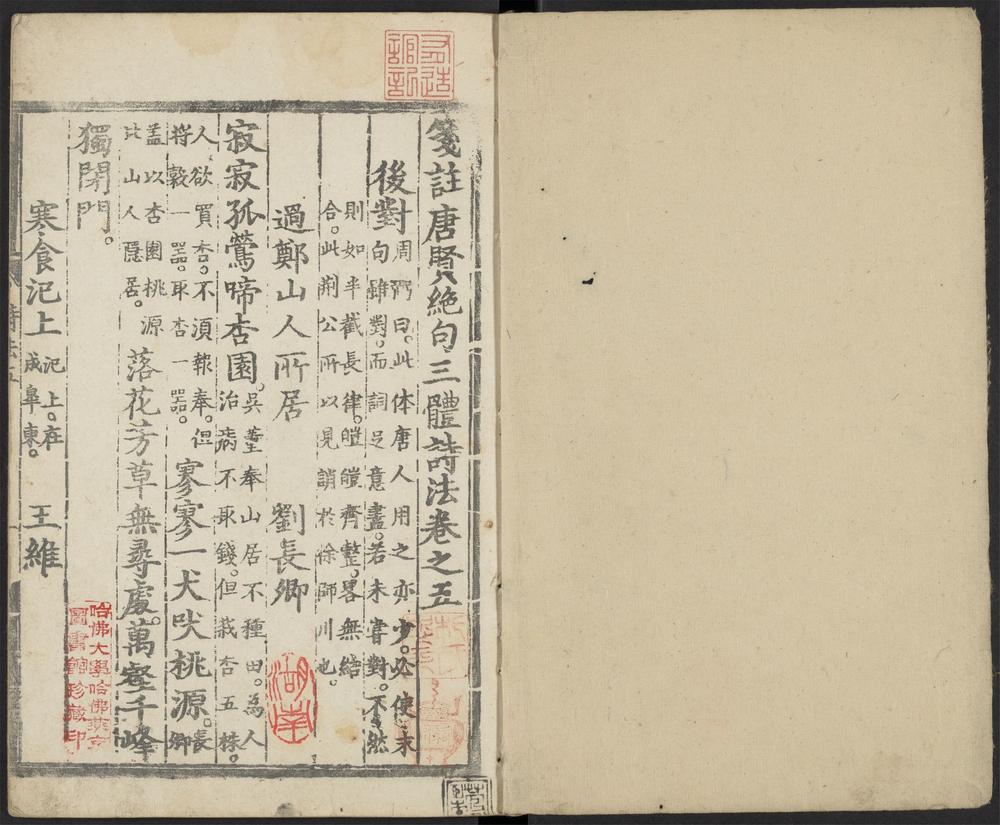 箋註唐賢絶句三體詩法卷之五
後對
周弼曰。此体唐人用之亦少。必使末
句雖對。而詞足意盡。若未甞對。不然
則如半截長律。皚皚齊整。畧無結
合。此荆公所以見誚於徐師川也。
過鄭山人所居 劉長卿
寂寂孤鶯啼杏園。
吳董奉山居不種田。為人
治病不取錢。但栽杏五株。
人欲買杏。不須報奉。但
將穀一器。取杏一器。
寥寥一犬吠桃源。
長
卿
盖以杏園桃源
比山人隱居。
落花芳草無尋處。萬壑千峰
獨閉門。
寒食汜上
汜上。在
成皐東。
王維
湖南
哈佛大學哈佛燕京
圖書館珍藏印